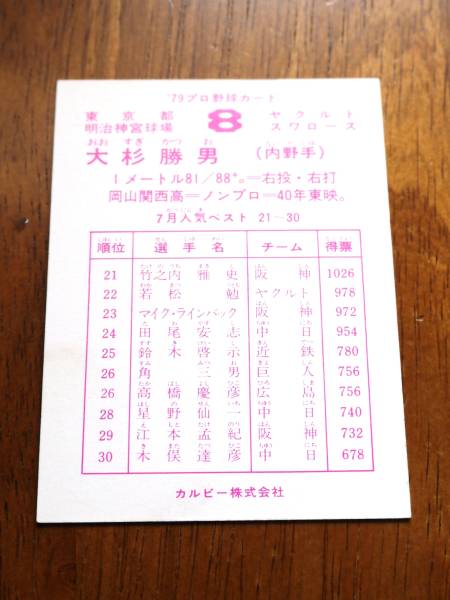 '79プロ野球カード
東京都 8 ヤクルト
明治神宮球場 スワローズ
おお すぎ かつ お
大杉勝男 (内野手)
1メートル81/88㌔=右投・右打
岡山関西高=ノンプロ=40年東映。
7月人気ベスト 21〜30
順位 選手名 チーム 得票
21 竹之内雅史 阪神 1026
22 若松勉 ヤクルト 978
23 マイク・ラインバック 阪神 972
24 田尾安志 中日 954
25 鈴木啓示 近鉄 780
26 角三男 巨人 756
26 高橋慶彦 広島 756
28 星野仙一 中日 740
29 江本孟紀 阪神 732
30 木俣達彦 中日 678
カルビー株式会社